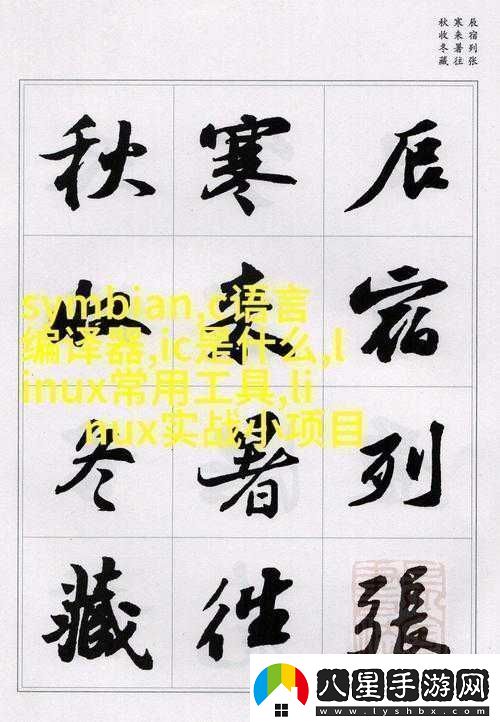 辰宿列张
寒来暑往
秋收冬藏
辰宿列張
寒来暑往
秋收冬藏
symbian,c语言
编译器,ic是什么,l
inux常用工具,li
nux实战小项目
八星手游网
www.lyshbx.com